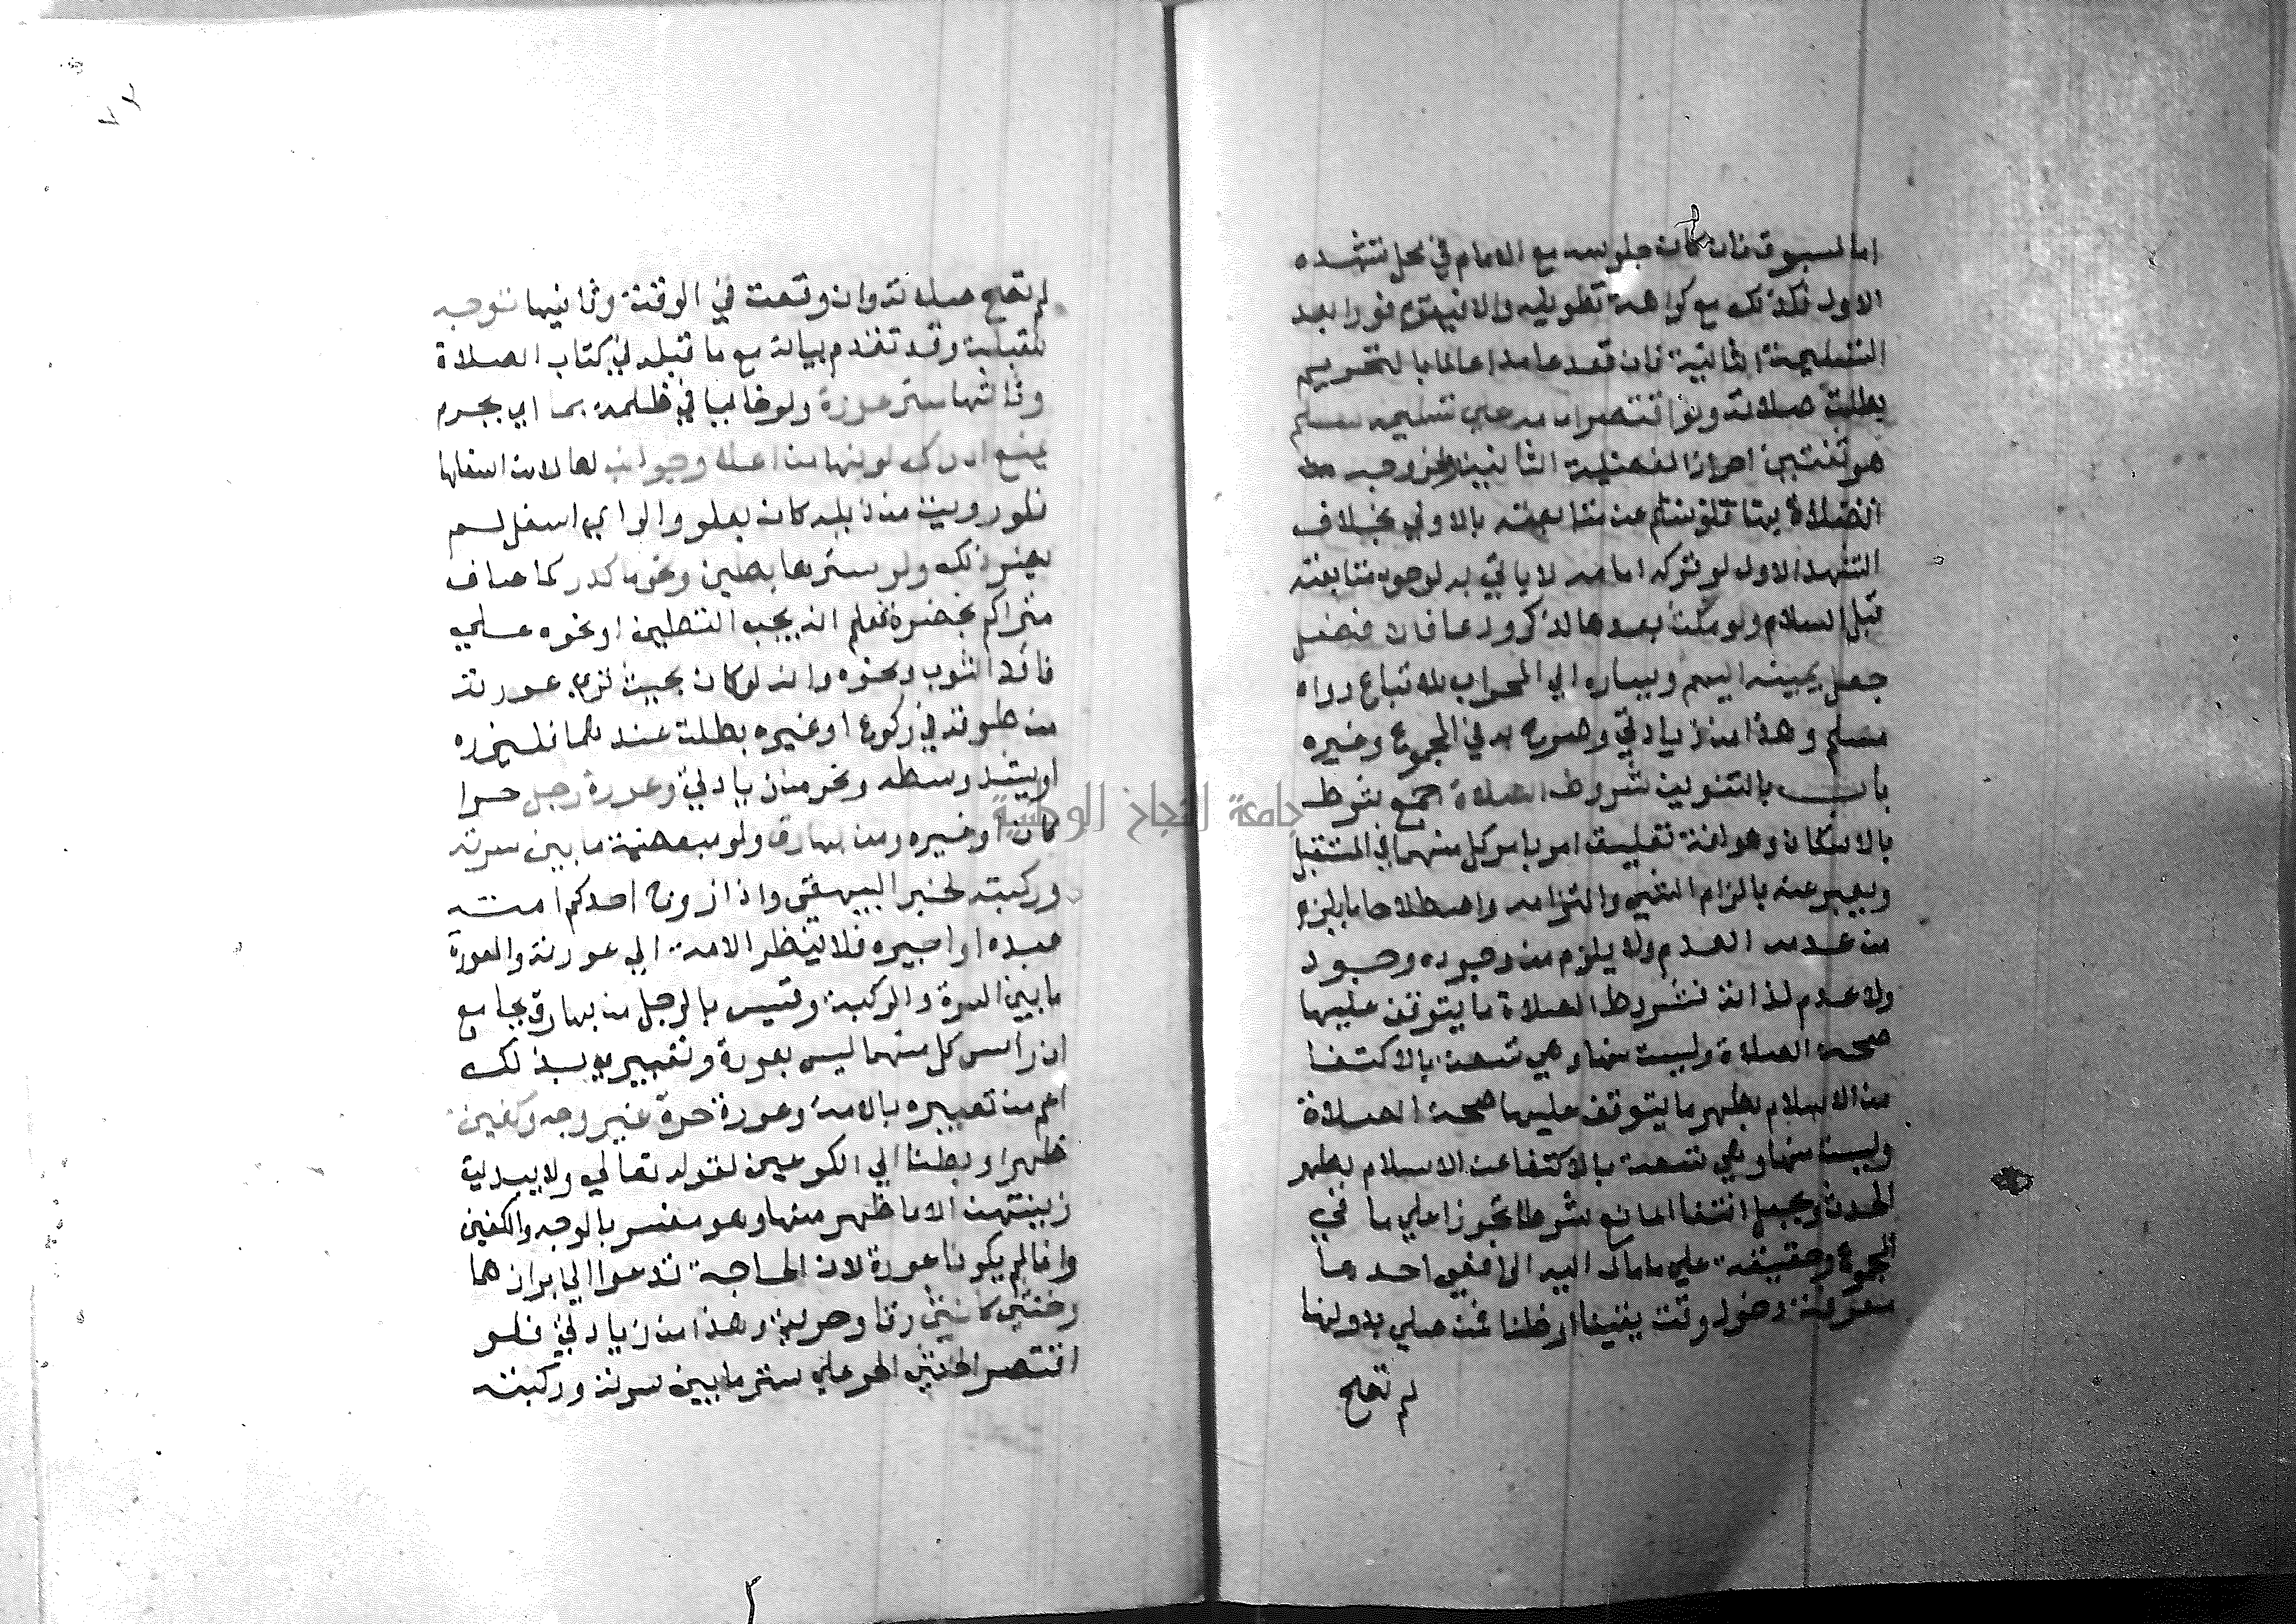 اما المسبوق فان كان جلوسه مع الامام في محل تشهده
الاول فكذلك مع كراهة تطويله والا فيقوم فورا بعد
التسليمة الثانية فان قعد عامدا عالما بالتحريم
بطلت صلاته ولو اقتصر امامه علي تسليمة سلم
هو ثنتين احراز الفضيلة الثانية ولخروجه من
الصلاة بها قلم عن متابعته بالاولي بخلاف
التشهد الاول لو تركه امامه لا ياتي به لوجوب متابعته
قبل السلام ولو مكث بعدها لذكر ودعا فالافضل
جعل يمينه اليهم ويساره الي المحراب للاتباع رواه
مسلم وهذا من زيادتي وصرح به في المجموع وغيره
باب بالتنوين شروط الصلاة جمع شرط
بالاسكان وهو لغة تعليق امر بامر كل منهما في المستقبل
ويعبر عنه بالزام الشي والتزامه واصطلاحا ما يلزم
من عدمه العدم ولا يلزم من وجوده وجود
ولا عدم لذاته فشروط الصلاة ما يتوقف عليها
صحة الصلاة وليست منها وهي تسعة بالاكتفا
من الاسلام بطهر ما يتوقف عليها صحة الصلاة
وليست منها وهي تسعة بالاكتفا عن الاسلام بطهر
الحدث وبجعل انتفا المانع شرطا تجوزا علي ما في
المجموع وحقيقة علي ما مال اليه الرافعي احدها
معرفة دخول وقت يقينا او ظنا فمن صلي بدونها
لم تصح
لم تصح صلاته وان وقعت في الوقت وثانيها توجه
للقبلة وقد تقدم بيانه مع ما قبله في كتاب الصلاة
وثالثها ستر عورة ولو خاليا في ظلمة بما اي بجرم
يمنع ادراك لونها من اعلا وجوانب لها لا من اسفلها
فلو رويت من ذيله كان بعلو والراي اسفل لم
يضر ذلك ولو سترها بطين ونحو ما كدر كما صاف
متراكم بخضرة فعلم انه يجب التطيين او نحوه علي
فاقد الثوب ونحوه وانه لو كان بحيث تري عورته
من طوقه في ركوع او غيره بطلت عندهما فليزره
او يشد وسطه ونحو من زيادتي وعورة رجل حرا
كان او غيره ومن بها رق ولو مبعضة ما بين سرته
وركبته لخبر البيهقي واذا زوج احدكم امته
عبده او اجيره فلا تنظر الامة الي عورته والعورة
ما بين السرة والركبة وقيس بالرجل من بها رق بجامع
ان راس كل منهما ليس بعورة وتعبيري بذلك
اعم من تعبيره بالامة وعورة حرة غير وجه وكفين
ظهرا وبطنا الي الكوعين لقوله تعالي ولا يبدين
زينتهن الا ما ظهر منها وهو مفسر بالوجه والكفين
وانما لم يكونا عورة لان الحاجة تدعوا الي ابرازهما
وخنثي كانثي رقا وحرية وهذا من زيادتي فلو
اقتصر الخنثي الحر علي ستر ما بين سرته وركبته
جامعة النجاح الوطنية